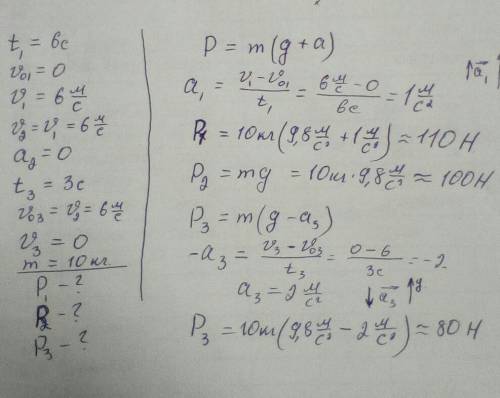 t₁ = 6c
v₀₁ = 0
v₁ = 6 м/с
v₂ = v₁ = 6 м/с
a₂ = 0
t₃ = 3c
v₀₃ = v₂ = 6 м/с
v₃ = 0
m = 10 кг
P₁ - ?
P₂ - ?
P₃ - ?
P = m(g + a)
a₁ = (v₁ - v₀₁)/t₁ = (6 м/с - 0)/6c = 1 м/с² ↑a⃗₁ ↑
P₁ = 10кг(9,8 м/с² + 1 м/с²) ≈ 110 Н
P₂ = mg = 10кг · 9,8 м/с² ≈ 100Н
P₃ = m(g - a₃)
-a₃ = (v₃ - v₀₃)/t₃ = (0 - 6)/3c = -2
a₃ = 2 м/с² ↓a⃗₃ ↑y
P₃ = 10кг(9,8 м/с² - 2 м/с²) ≈ 80 Н